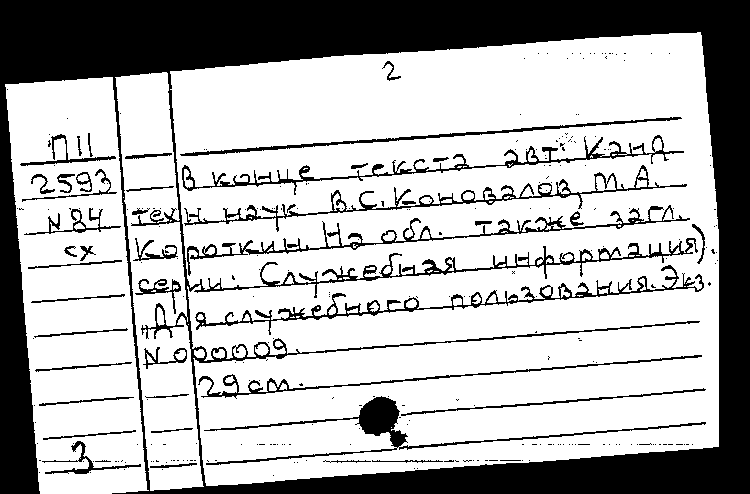 2
П II
2593
N 84
сх
В конце текста авт: Канд
техн. наук В.С. Коновалов, М.А.
Короткин. На обл. также загл.
серии: Служебная информация).
„Для служебного пользования. Экз.
N 000009.
29 см.
3